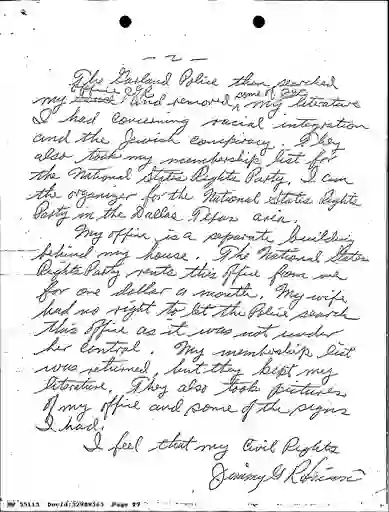 - 2 -
The Garland Police then searched
office JGR some of JGR
my house and removed my literature
I had concerning racial integration
and the Jewish conspiracy. They
also took my membership list for
the National States Rights Party. I am
the organizer for the National States Rights
Party in the Dallas Texas area.
My office is a separate building
behind my house. The National States
Rights Party rents this office from me
for one dollar a month. My wife
had no right to let the Police search
this office as it was not under
her control. My membership list
was returned, but they kept my
literature. They also took pictures
of my office and some of the signs
I had.
I feel that my Civil Rights
Jimmy G Robinson
55115 DocId:32989565 Page 99